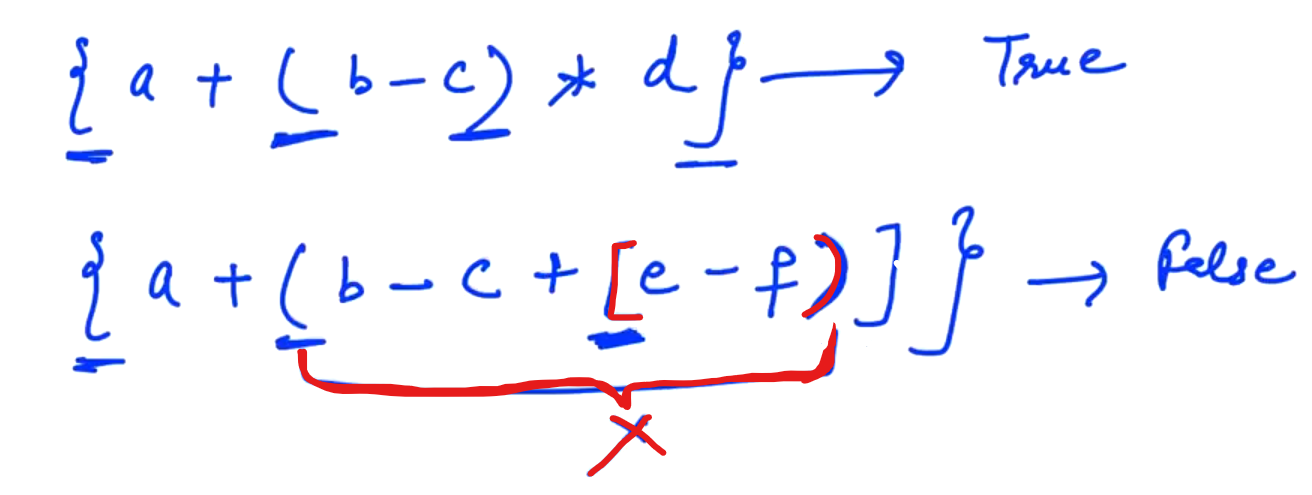 { a + ( b - c ) * d } → True
{ a + ( b - c + [ e - f ) ] } → False
X